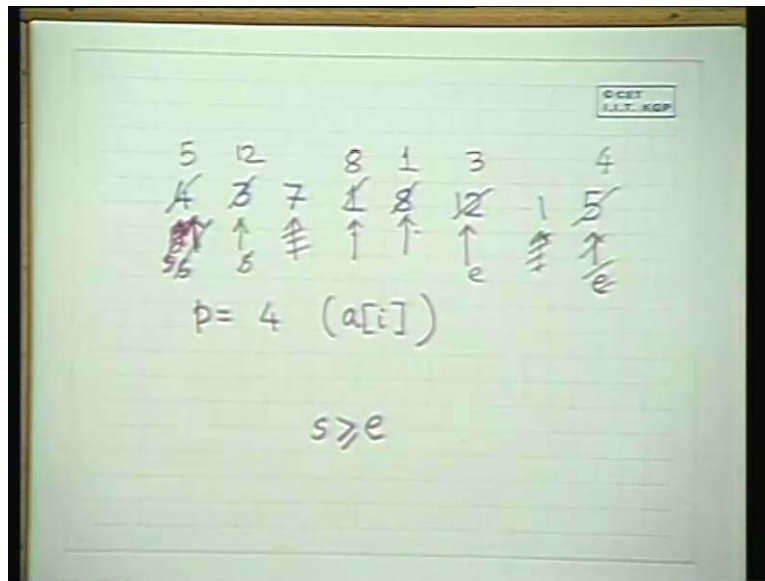 © CET
I.I.T. KGP
5 12 8 1 3 4
4 3 7 1 8 12 1 5
s s e e
p = 4 (a[i])
s ⩾ e